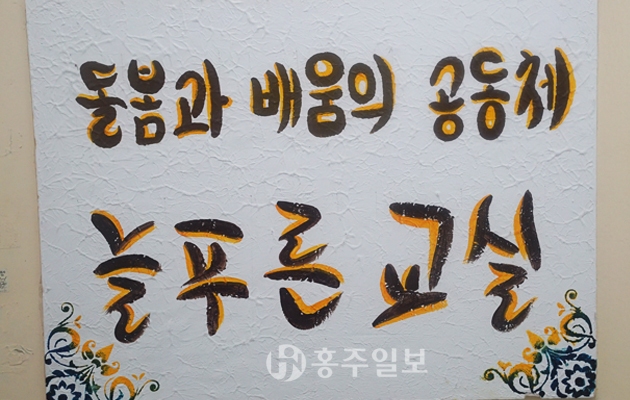 돌봄과 배움의 공동체
늘푸른 교실
홍주일보